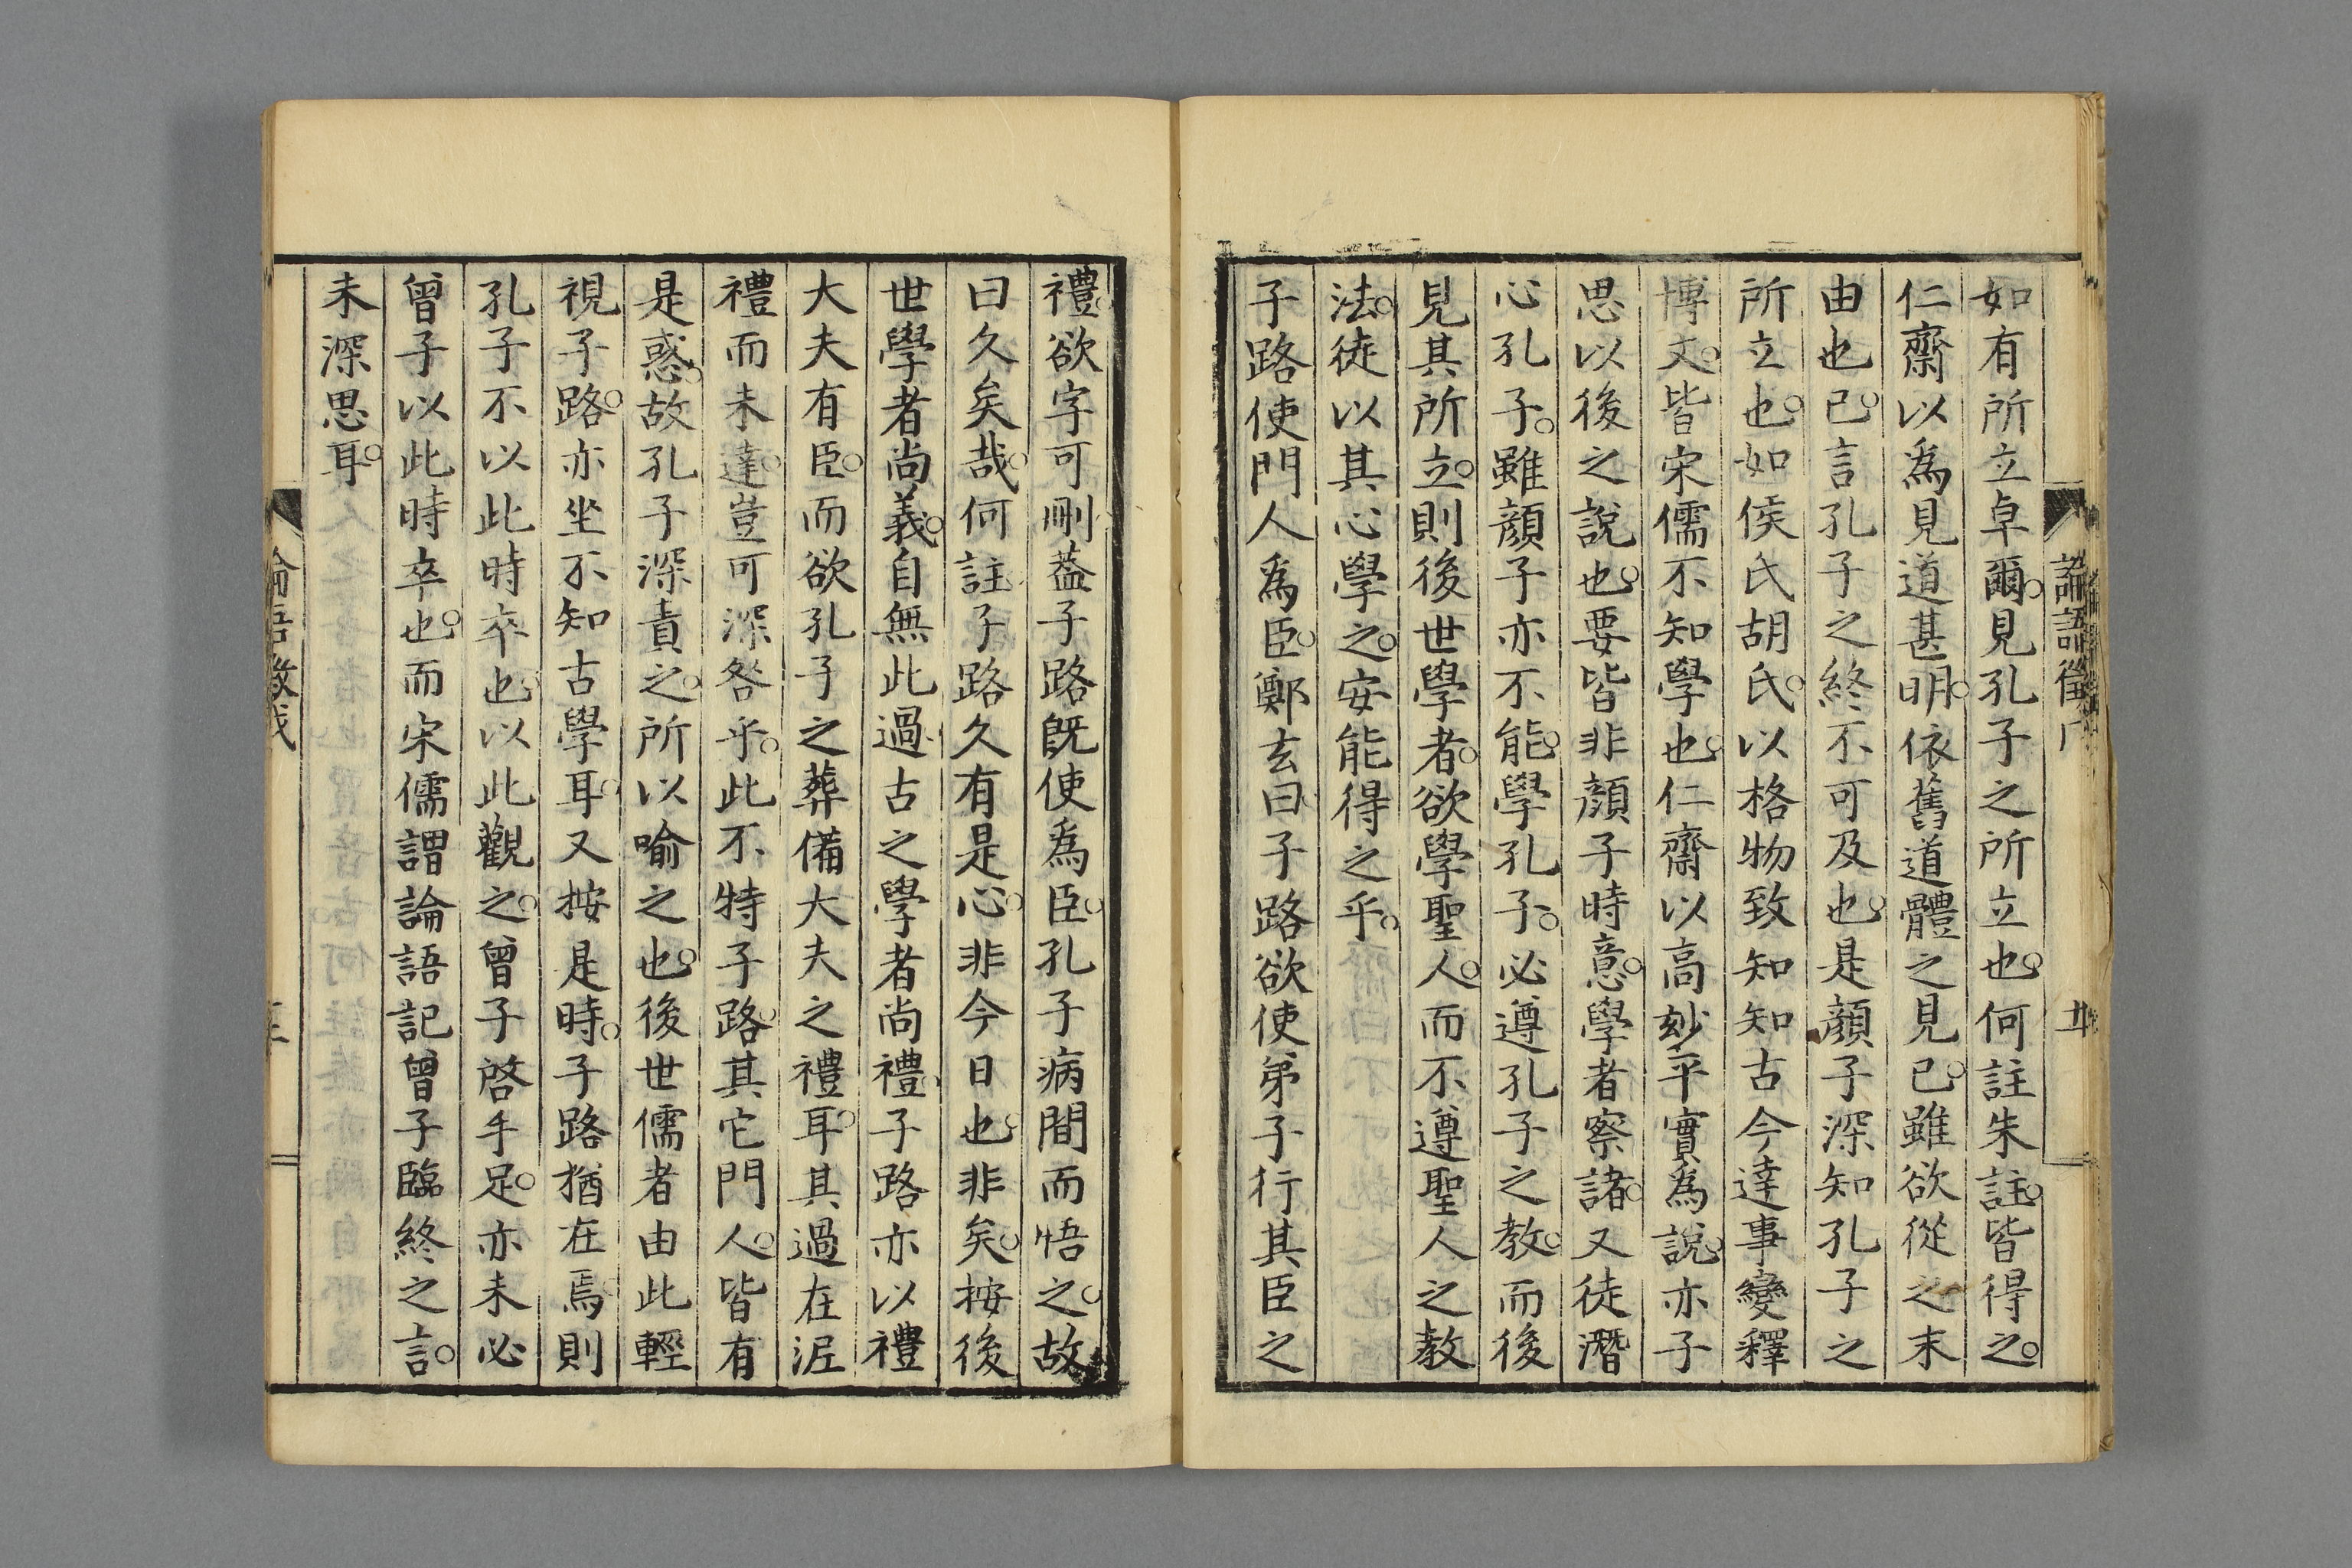 如有所立卓爾。見孔子之所立也。何註朱註。皆得之。
仁齋以爲見道甚明。依舊道體之見已。雖欲從之末
由也已。言孔子之終不可及也。是顔子深知孔子之
所立也。如侯氏胡氏。以格物致知知古今達事變釋
博文。皆宋儒不知學也。仁齋以高妙平實爲說。亦子
思以後之說也。要皆非顔子時意。學者察諸。又徒潛
心孔子。雖顔子亦不能。學孔子。必遵孔子之教。而後
見其所立。則後世學者。欲學聖人。而不遵聖人之教
法。徒以其心學之。安能得之乎。
子路使門人爲臣。鄭玄曰子路欲使弟子行其臣之
禮。欲字可刪葢子路旣使爲臣。孔子病間而悟之。故
曰久矣哉。何註子路久有是心。非今日也。非矣。按後
世學者尚義。自無此過古之學者尚禮子路亦以禮
大夫有臣。而欲孔子之葬備大夫之禮耳。其過在泥
禮而未達。豈可深咎乎。此不特子路。其它門人。皆有
是惑。故孔子深責之。所以喻之也。後世儒者由此輕
視子路。亦坐不知古學耳。又按是時。子路猶在焉。則
孔子不以此時卒也。以此觀之。曾子啓手足。亦未必
曾子以此時卒也。而宋儒謂論語記曾子臨終之言。
未深思耳。
論語徵